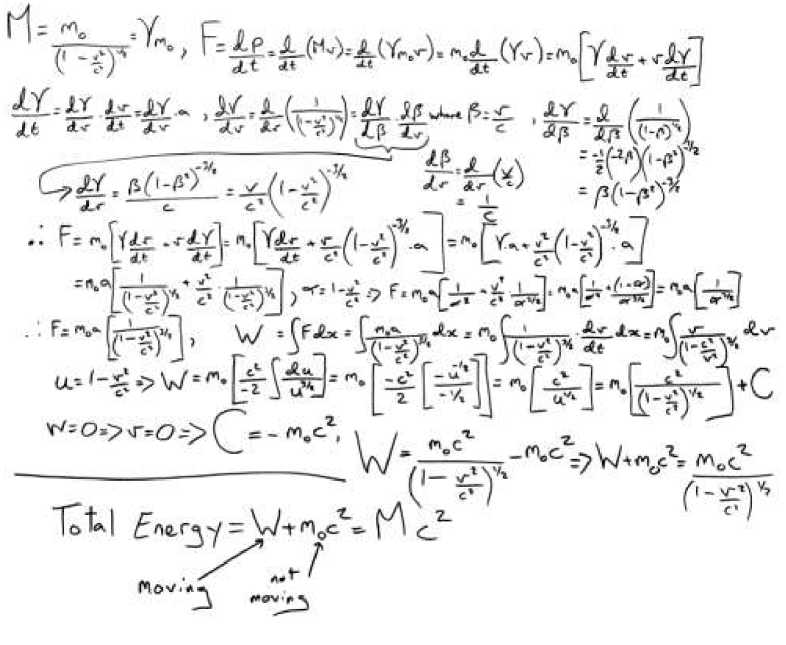 M = m₀/(1 - v²/c²)^½ = γm₀, F = dp/dt = d/dt(Mv) = d/dt(γm₀v) = m₀ d/dt(γv) = m₀[γ dv/dt + v dγ/dt]
dγ/dt = dγ/dv · dv/dt = dγ/dv · a, dγ/dv = d/dv(1/(1-v²/c²)^½) = dγ/dβ · dβ/dv where β = v/c, dγ/dβ = d/dβ(1/(1-β²)^½)
= -½(-2β)(1-β²)^-3/2
dβ/dv = d/dv(v/c)
= 1/c
= β(1-β²)^-3/2
dγ/dv = β(1-β²)^-3/2/c = v/c²(1 - v²/c²)^-3/2
∴ F = m₀[γ dv/dt + v dγ/dt] = m₀[γ dv/dt + v v/c²(1 - v²/c²)^-3/2 · a] = m₀[γ·a + v²/c²(1 - v²/c²)^-3/2 · a]
= m₀a[1/(1-v²/c²)^½ + v²/c² · 1/(1-v²/c²)^3/2], σ = 1 - v²/c² => F = m₀a[1/σ^½ + v²/c² · 1/σ^3/2] = m₀a[1/σ^½ + (1-σ)/σ^3/2] = m₀a[1/σ^3/2]
∴ F = m₀a[1/(1-v²/c²)^3/2], W = ∫Fdx = ∫ m₀a/(1-v²/c²)^3/2 dx = m₀∫ 1/(1-v²/c²)^3/2 · dv/dt dx = m₀∫ v/(1-c²/v²)^3/2 dv
u = 1 - v²/c² => W = m₀[c²/-2 ∫ du/u^3/2] = m₀[-c²/2 [-u^-½/-½]] = m₀[c²/u^½] = m₀[c²/(1-v²/c²)^½] + C
W=0 => v=0 => C = -m₀c², W = m₀c²/(1 - v²/c²)^½ - m₀c² => W + m₀c² = m₀c²/(1 - v²/c²)^½
Total Energy = W + m₀c² = Mc²
moving
not
moving